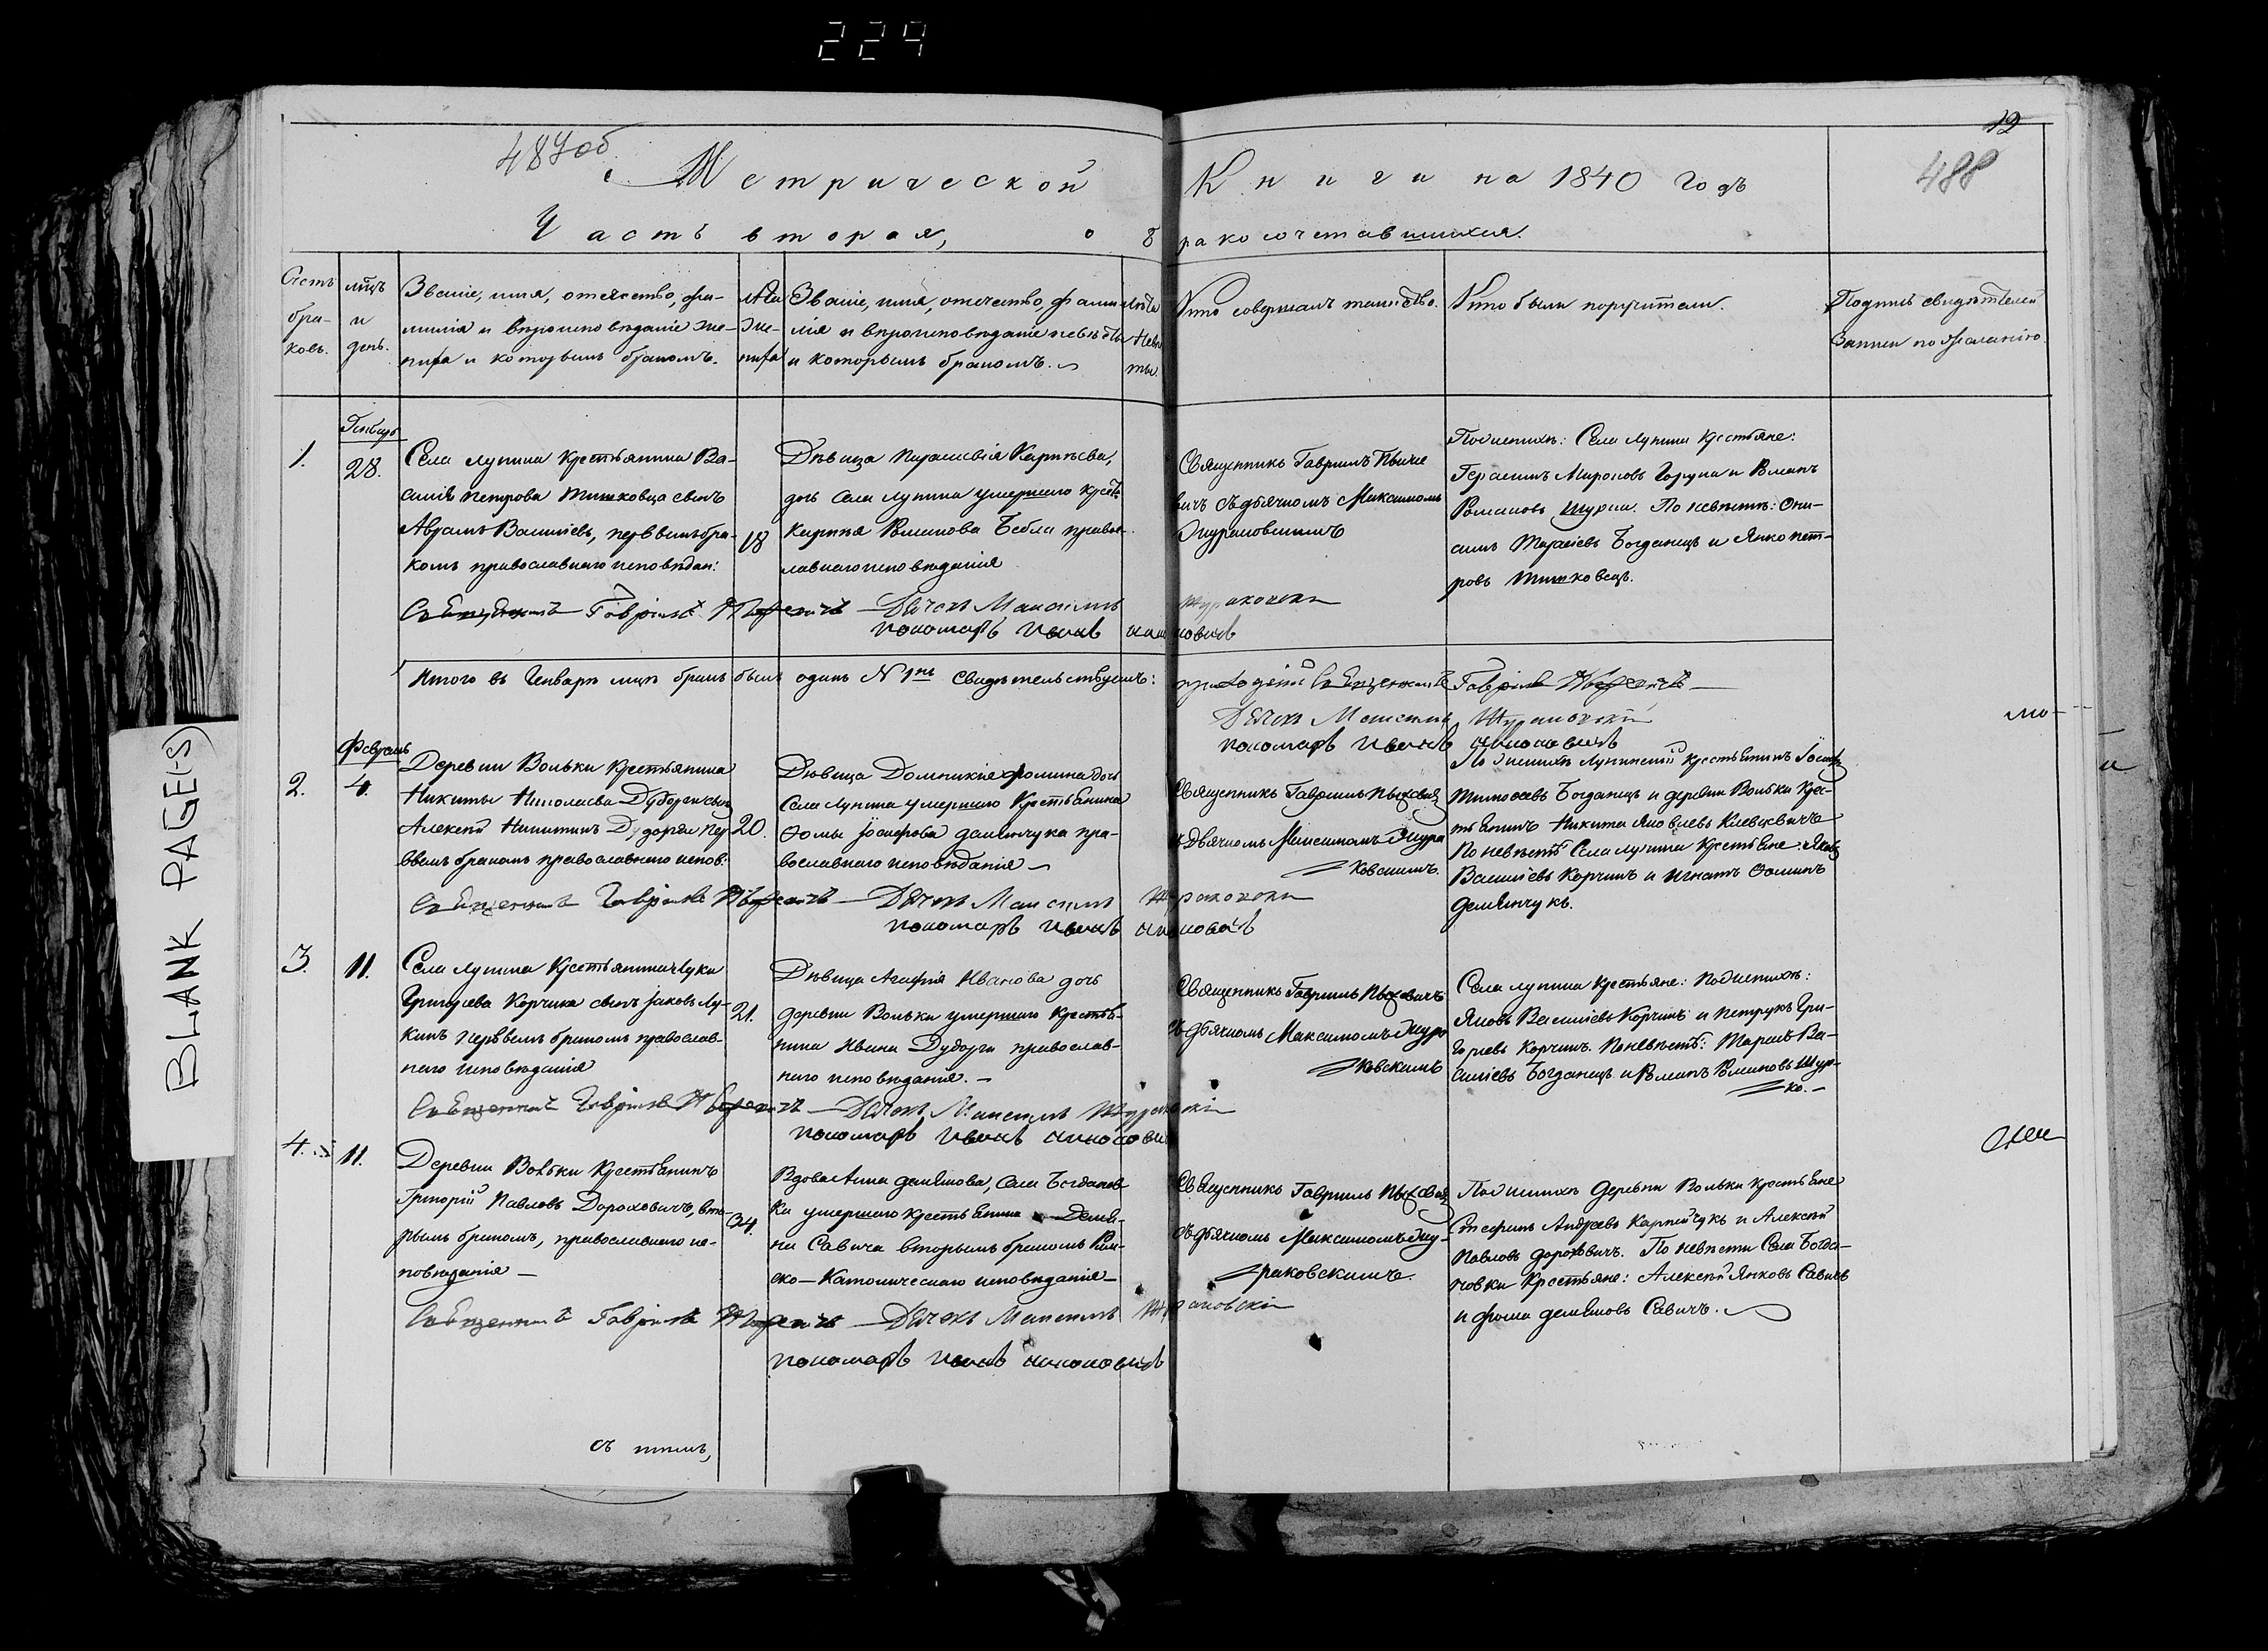 224
487об
12
Метрической Книги на 1840 годъ
488
Часть вторая, о бракосочетавшихся.
Счетъ бра-ковъ.
мѣцъ и день.
Званіе, имя, отечество, фа-
милія и вѣроисповѣданіе же-
ниха и которымъ бракомъ.
лѣта же-ниха
Званіе, имя, отечество, фами
лія и вѣроисповѣданіе невѣсты
и которымъ бракомъ.
лѣта невѣсты.
Кто совершалъ таинство.
Кто были поручители.
Подпись свидѣтелей
записи по желанію.
1.
Генварь
28.
Села Лунина Крестьянина Ва-
силія Петрова Тишковца сынъ
Аврамъ Василіевъ, первымъ бра-
комъ православнаго исповѣдан:
18
Дѣвица Параскевія Карпѣева,
дочь Села Лунина умершаго крест.
Карпѣя Романова Бобла правос-
лавнаго исповѣданія
Священникъ Гавріилъ
вичъ съ дьячкомъ Максимомъ
Жураковскимъ
По женихѣ: Села Лунина Крестьяне:
Герасимъ Мироновъ и Романъ
Романовъ Шурко. По невѣстѣ: Они-
симъ Тарасіевъ Богданецъ и Янко Пет-
ровъ Тишковецъ.
Священникъ Гавріилъ Дьячокъ Максимъ Жураковскій
пономарь Иванъ
Итого въ Генварѣ мцѣ бракъ былъ одинъ N 1й Свидѣтельствуемъ:
приходскій Священникъ Гавріилъ
Дьячокъ Максимъ Жураковскій
пономарь Иванъ
мо-
2.
Февраль
4.
Деревни Вольки Крестьянина
Никиты Николаева Дудорги сынъ
Алексѣй Никитинъ Дудорга пер
вымъ бракомъ православнаго испов:
20.
Дѣвица Домникія Фомина дочь
Села Лунина умершаго Крестьянина
Ѳомы Іосифова Демянчука пра-
вославнаго исповѣданія
Священникъ Гавріилъ
съ Дьячкомъ Максимомъ Жура
ковскимъ.
По женихѣ Лунинскій крестьянинъ
Тимоѳеевъ Богданецъ и деревни Вольки Крес-
тьянинъ Никита Яковлевъ
По невѣстѣ Села Лунина Крестьяне: Яковъ
Василіевъ Корчикъ и Игнатъ Ѳоминъ
Демянчукъ.
Священникъ Гавріилъ Дьячокъ Максимъ Жураковскій
пономарь Иванъ
3.
11.
Села Лунина Крестьянина Луки
Григорьева Корчика сынъ Јаковъ Лу-
кинъ первымъ бракомъ православ-
наго исповѣданія
21.
Дѣвица Агафія Иванова дочь
деревни Вольки умершаго Крестья-
нина Ивана Дудорги православ-
наго исповѣданія. —
Священникъ Гавріилъ
съ дьячкомъ Максимомъ Жура
ковскимъ
Села Лунина Крестьяне: По женихѣ:
Яковъ Василіевъ Корчикъ и Петрукъ Гри-
горьевъ Корчикъ. По невѣстѣ: Тарасъ Ва-
силіевъ Богданецъ и Романъ Романовъ Шур-
ко. —
Священникъ Гавріилъ Дьячокъ Максимъ Жураковскій
пономарь Иванъ
4.
11.
Деревни Вольки Крестьянинъ
Григорій Павловъ Дороховичъ, вто-
рымъ бракомъ, православнаго ис-
повѣданія —
34.
Вдова Анна Демянова, Села Богданов
ки умершаго Крестьянина Демья-
на Савича вторымъ бракомъ Рим-
ско-Католическаго исповѣданія
Священникъ Гавріилъ
съ дьячкомъ Максимомъ Жу-
раковскимъ.
По женихѣ деревни Вольки Крестьяне
Стефанъ Андреевъ Карпейчукъ и Алексѣй
Павловъ Дороховичъ. По невѣсти Села Богда-
новки Крестьяне: Алексѣй Янковъ Савичъ
и Фома Демяновъ Савичъ.
Священникъ Гавріилъ Дьячокъ Максимъ Жураковскій
пономарь Иванъ
съ тѣмъ,
BLANK PAGE(S)